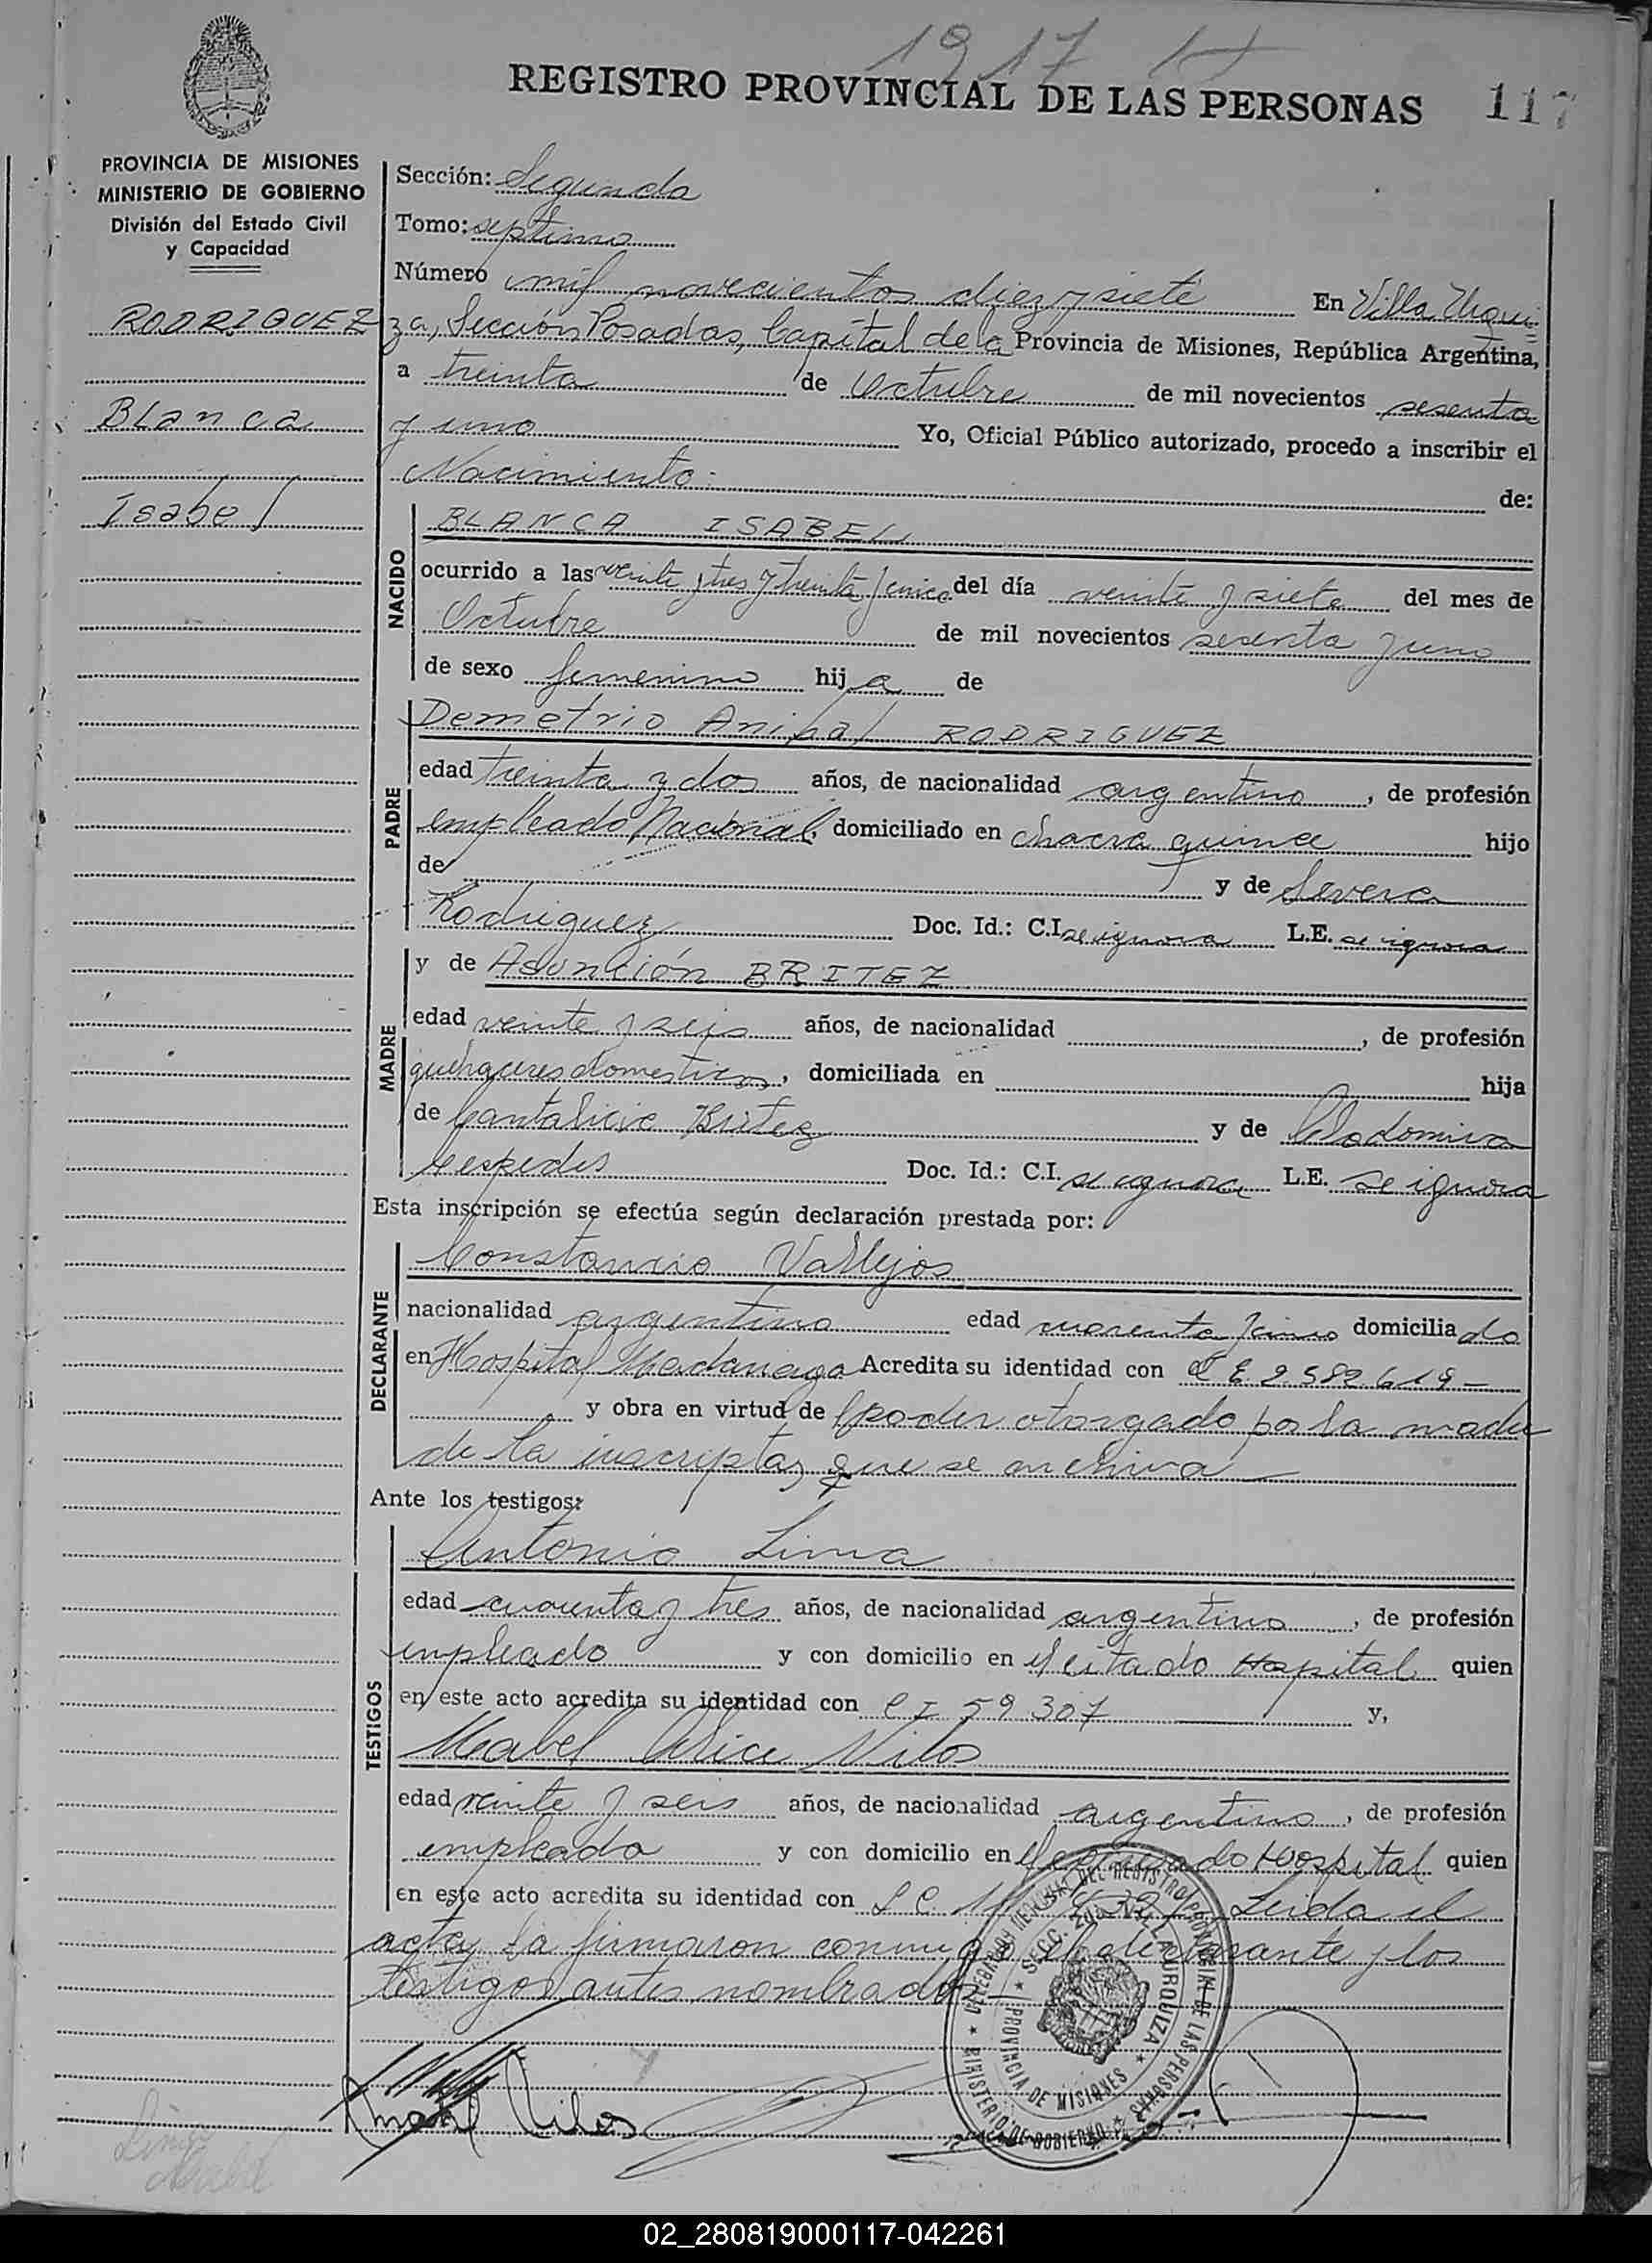 1917
REGISTRO PROVINCIAL DE LAS PERSONAS 117
PROVINCIA DE MISIONES
MINISTERIO DE GOBIERNO
División del Estado Civil
y Capacidad
RODRIGUEZ
Blanca
Isabel
Sección: Segunda
Tomo: septimo
Número mil novecientos diez y siete En Villa Urqui=
za, Sección Posadas, Capital de la Provincia de Misiones, República Argentina,
a treinta de Octubre de mil novecientos sesenta
y uno Yo, Oficial Público autorizado, procedo a inscribir el
Nacimiento: de:
NACIDO
BLANCA ISABEL
ocurrido a las veinte y tres y treinta y cinco del día veinte y siete del mes de
Octubre de mil novecientos sesenta y uno
de sexo femenino hija de
PADRE
Demetrio Anibal RODRIGUEZ
edad treinta y dos años, de nacionalidad argentino, de profesión
empleado Nacional, domiciliado en chacra quince hijo
de y de Severa
Rodriguez Doc. Id.: C.I. se ignora L.E. se ignora
MADRE
y de Asunción BRITEZ
edad veinte y seis años, de nacionalidad , de profesión
quehaceres domesticos, domiciliada en hija
de Cantalicio Britez y de Clodomira
Cespedes Doc. Id.: C.I. se ignora L.E. se ignora
Esta inscripción se efectúa según declaración prestada por:
DECLARANTE
Constancio Vallejos
nacionalidad argentino edad cuarenta y cinco domiciliado
en Hospital Madariaga Acredita su identidad con L E 2.582.619-
y obra en virtud de poder otorgado por la madre
de la inscripta, que se archiva
Ante los testigos:
TESTIGOS
Antonio Lima
edad cuarenta y tres años, de nacionalidad argentino, de profesión
empleado y con domicilio en el citado Hospital quien
en este acto acredita su identidad con C I 59 307 y,
Mabel Vilos
edad veinte y seis años, de nacionalidad argentina, de profesión
empleada y con domicilio en el Hospital quien
en este acto acredita su identidad con L C Leida el
acta, la firmaron conmigo el declarante y los
testigos antes nombrados
DEL REGISTRO PROVINCIAL DE LAS PERSONAS
MINISTERIO DE GOBIERNO
SECC. 2da VILLA URQUIZA
PROVINCIA DE MISIONES
Mabel Vilos
Lima
Mabel
02_280819000117-042261